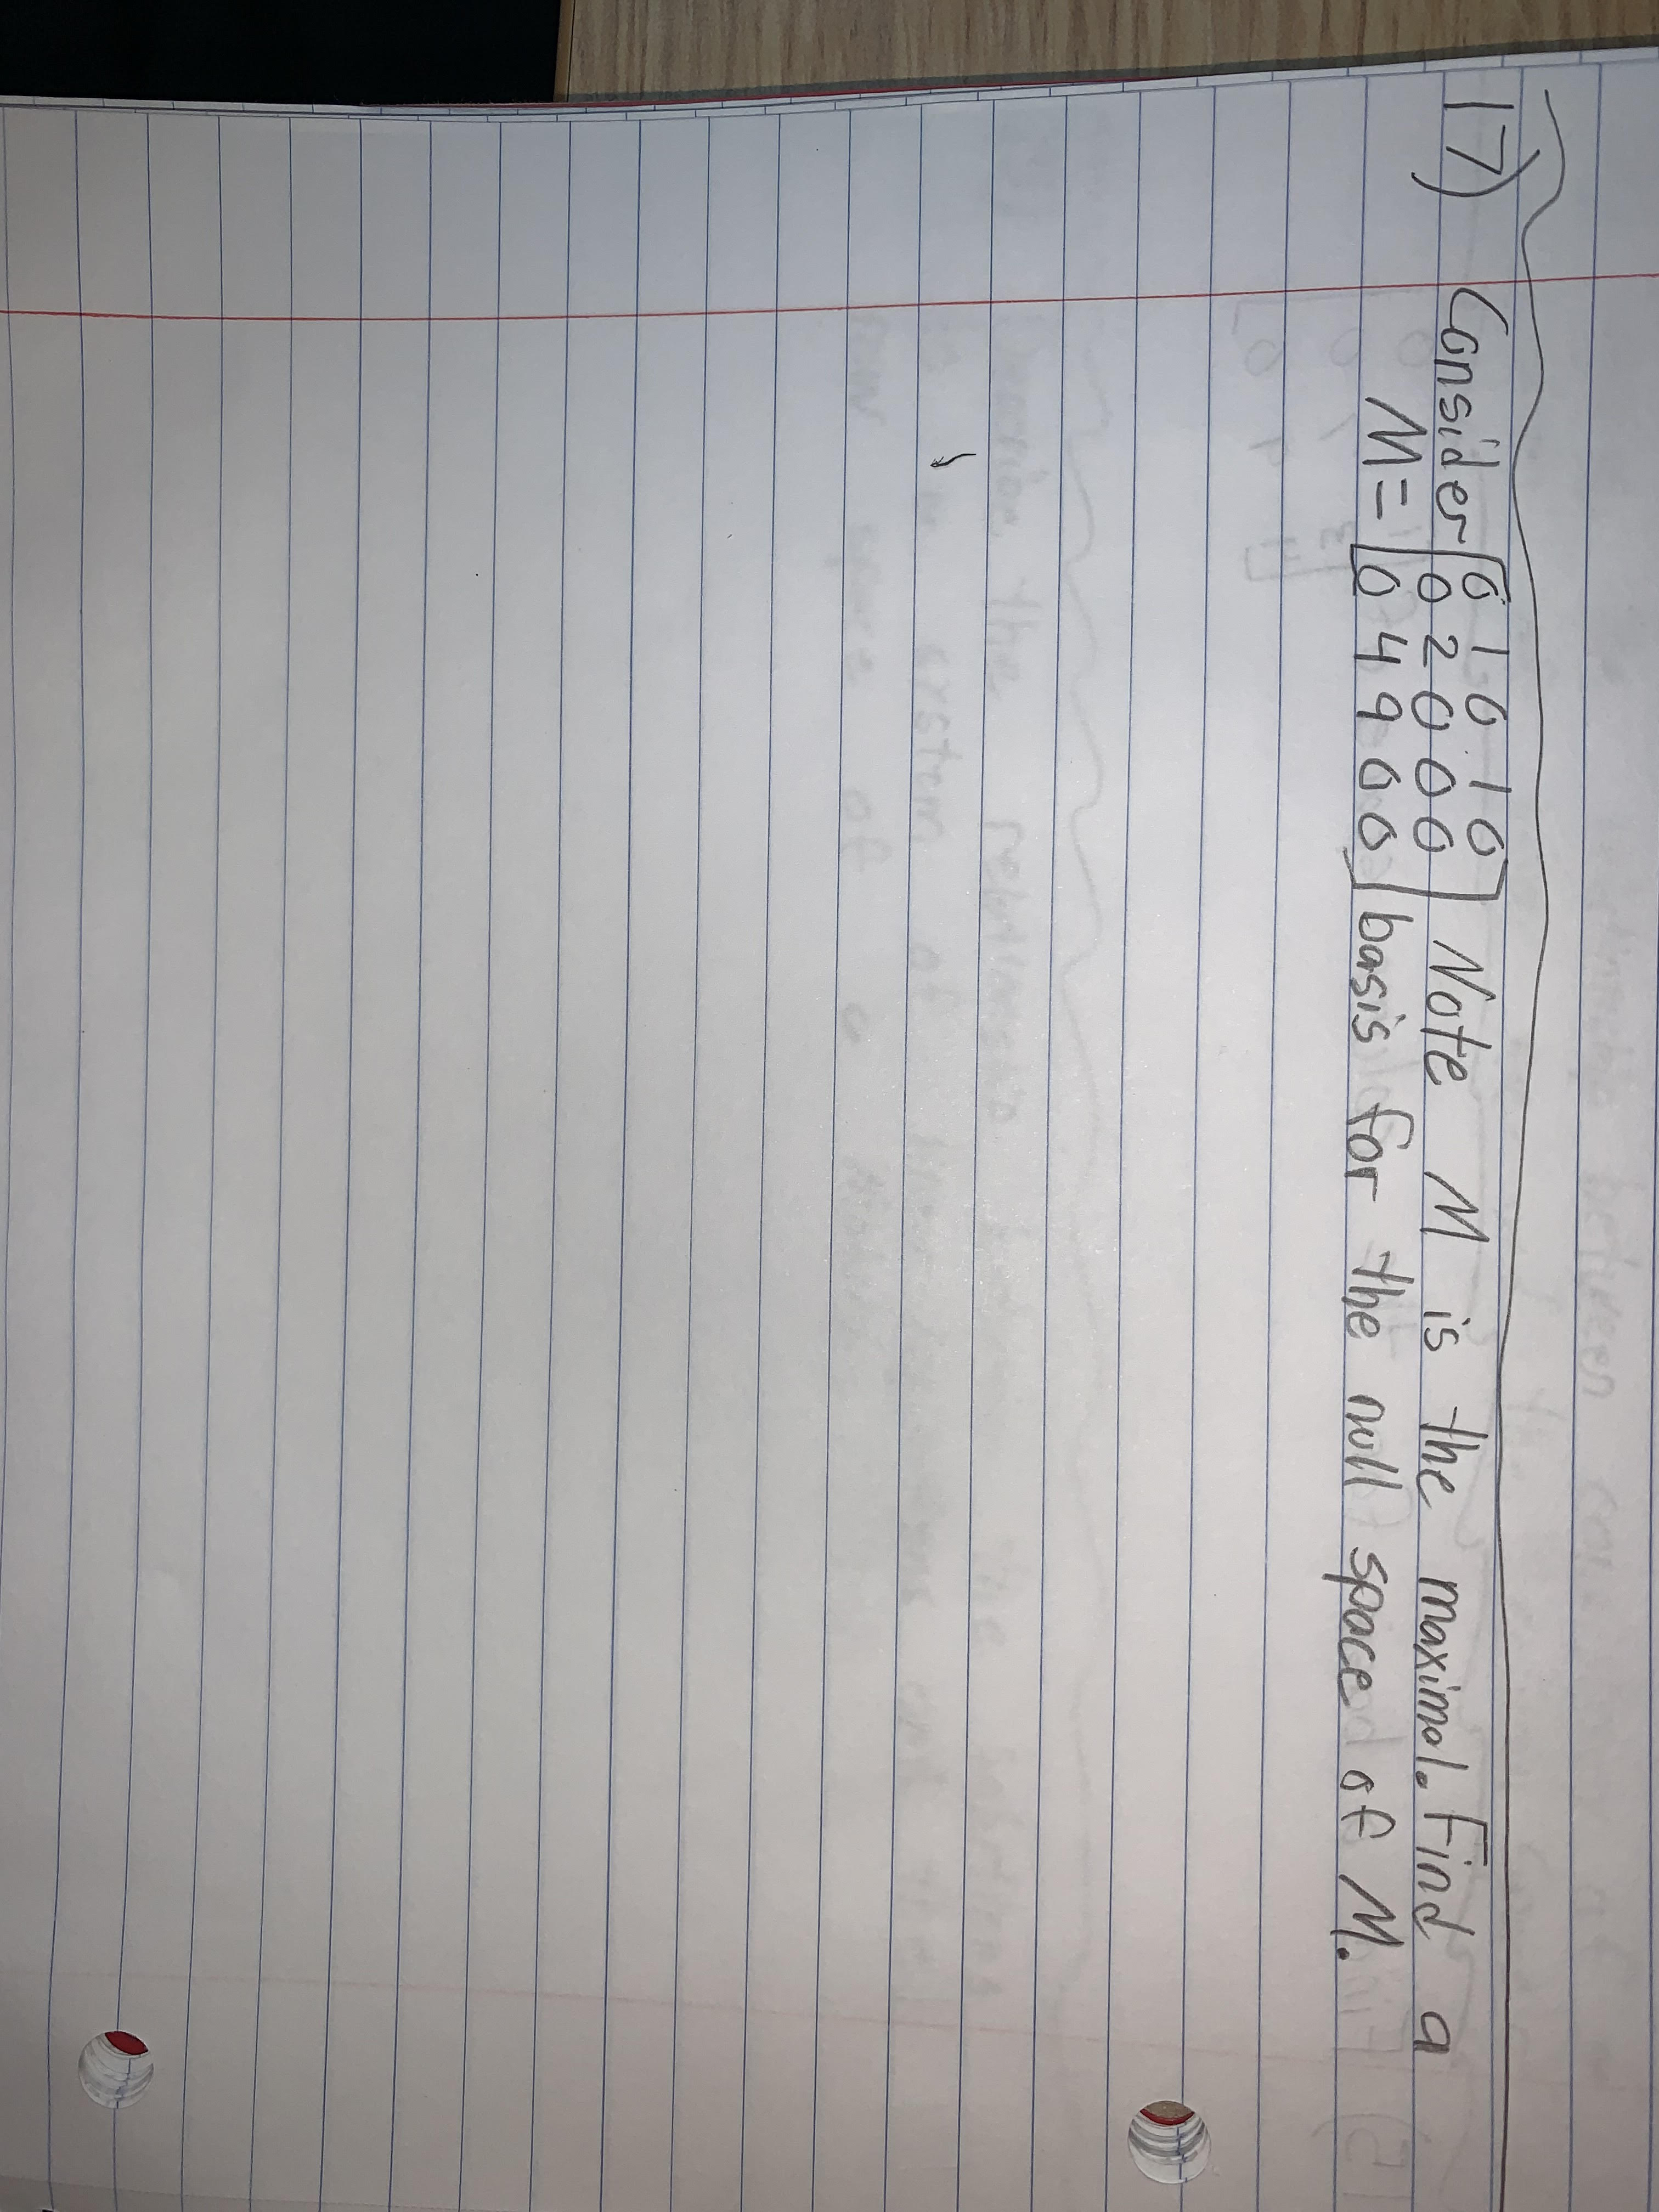 17) Consider [0 1 0 1 0]
M = [0 2 0 0 0] Note M is the maximal. Find a
[0 4 9 0 0] basis for the null space of M.